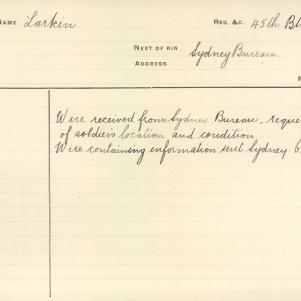 NAME Larkin REG. &C. 45th
NEXT OF KIN Sydney Bureau.
ADDRESS
Wire received from Sydney Bureau, reque
of soldier's location and condition.
Wire containing information sent Sydney 6